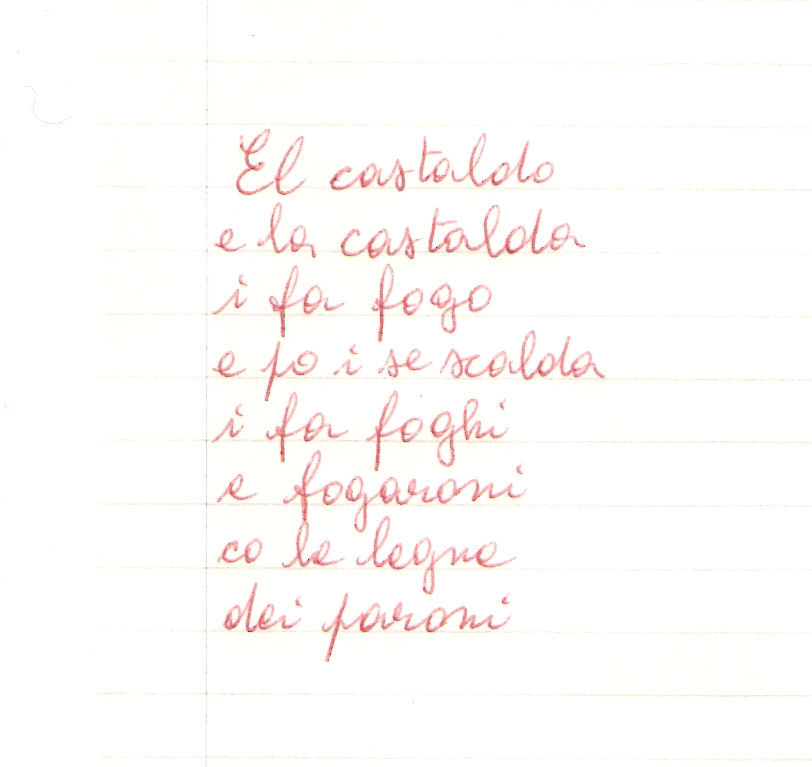 El castaldo
e la castalda
i fa fogo
e po i se scalda
i fa foghi
e fogaroni
co le legne
dei paroni